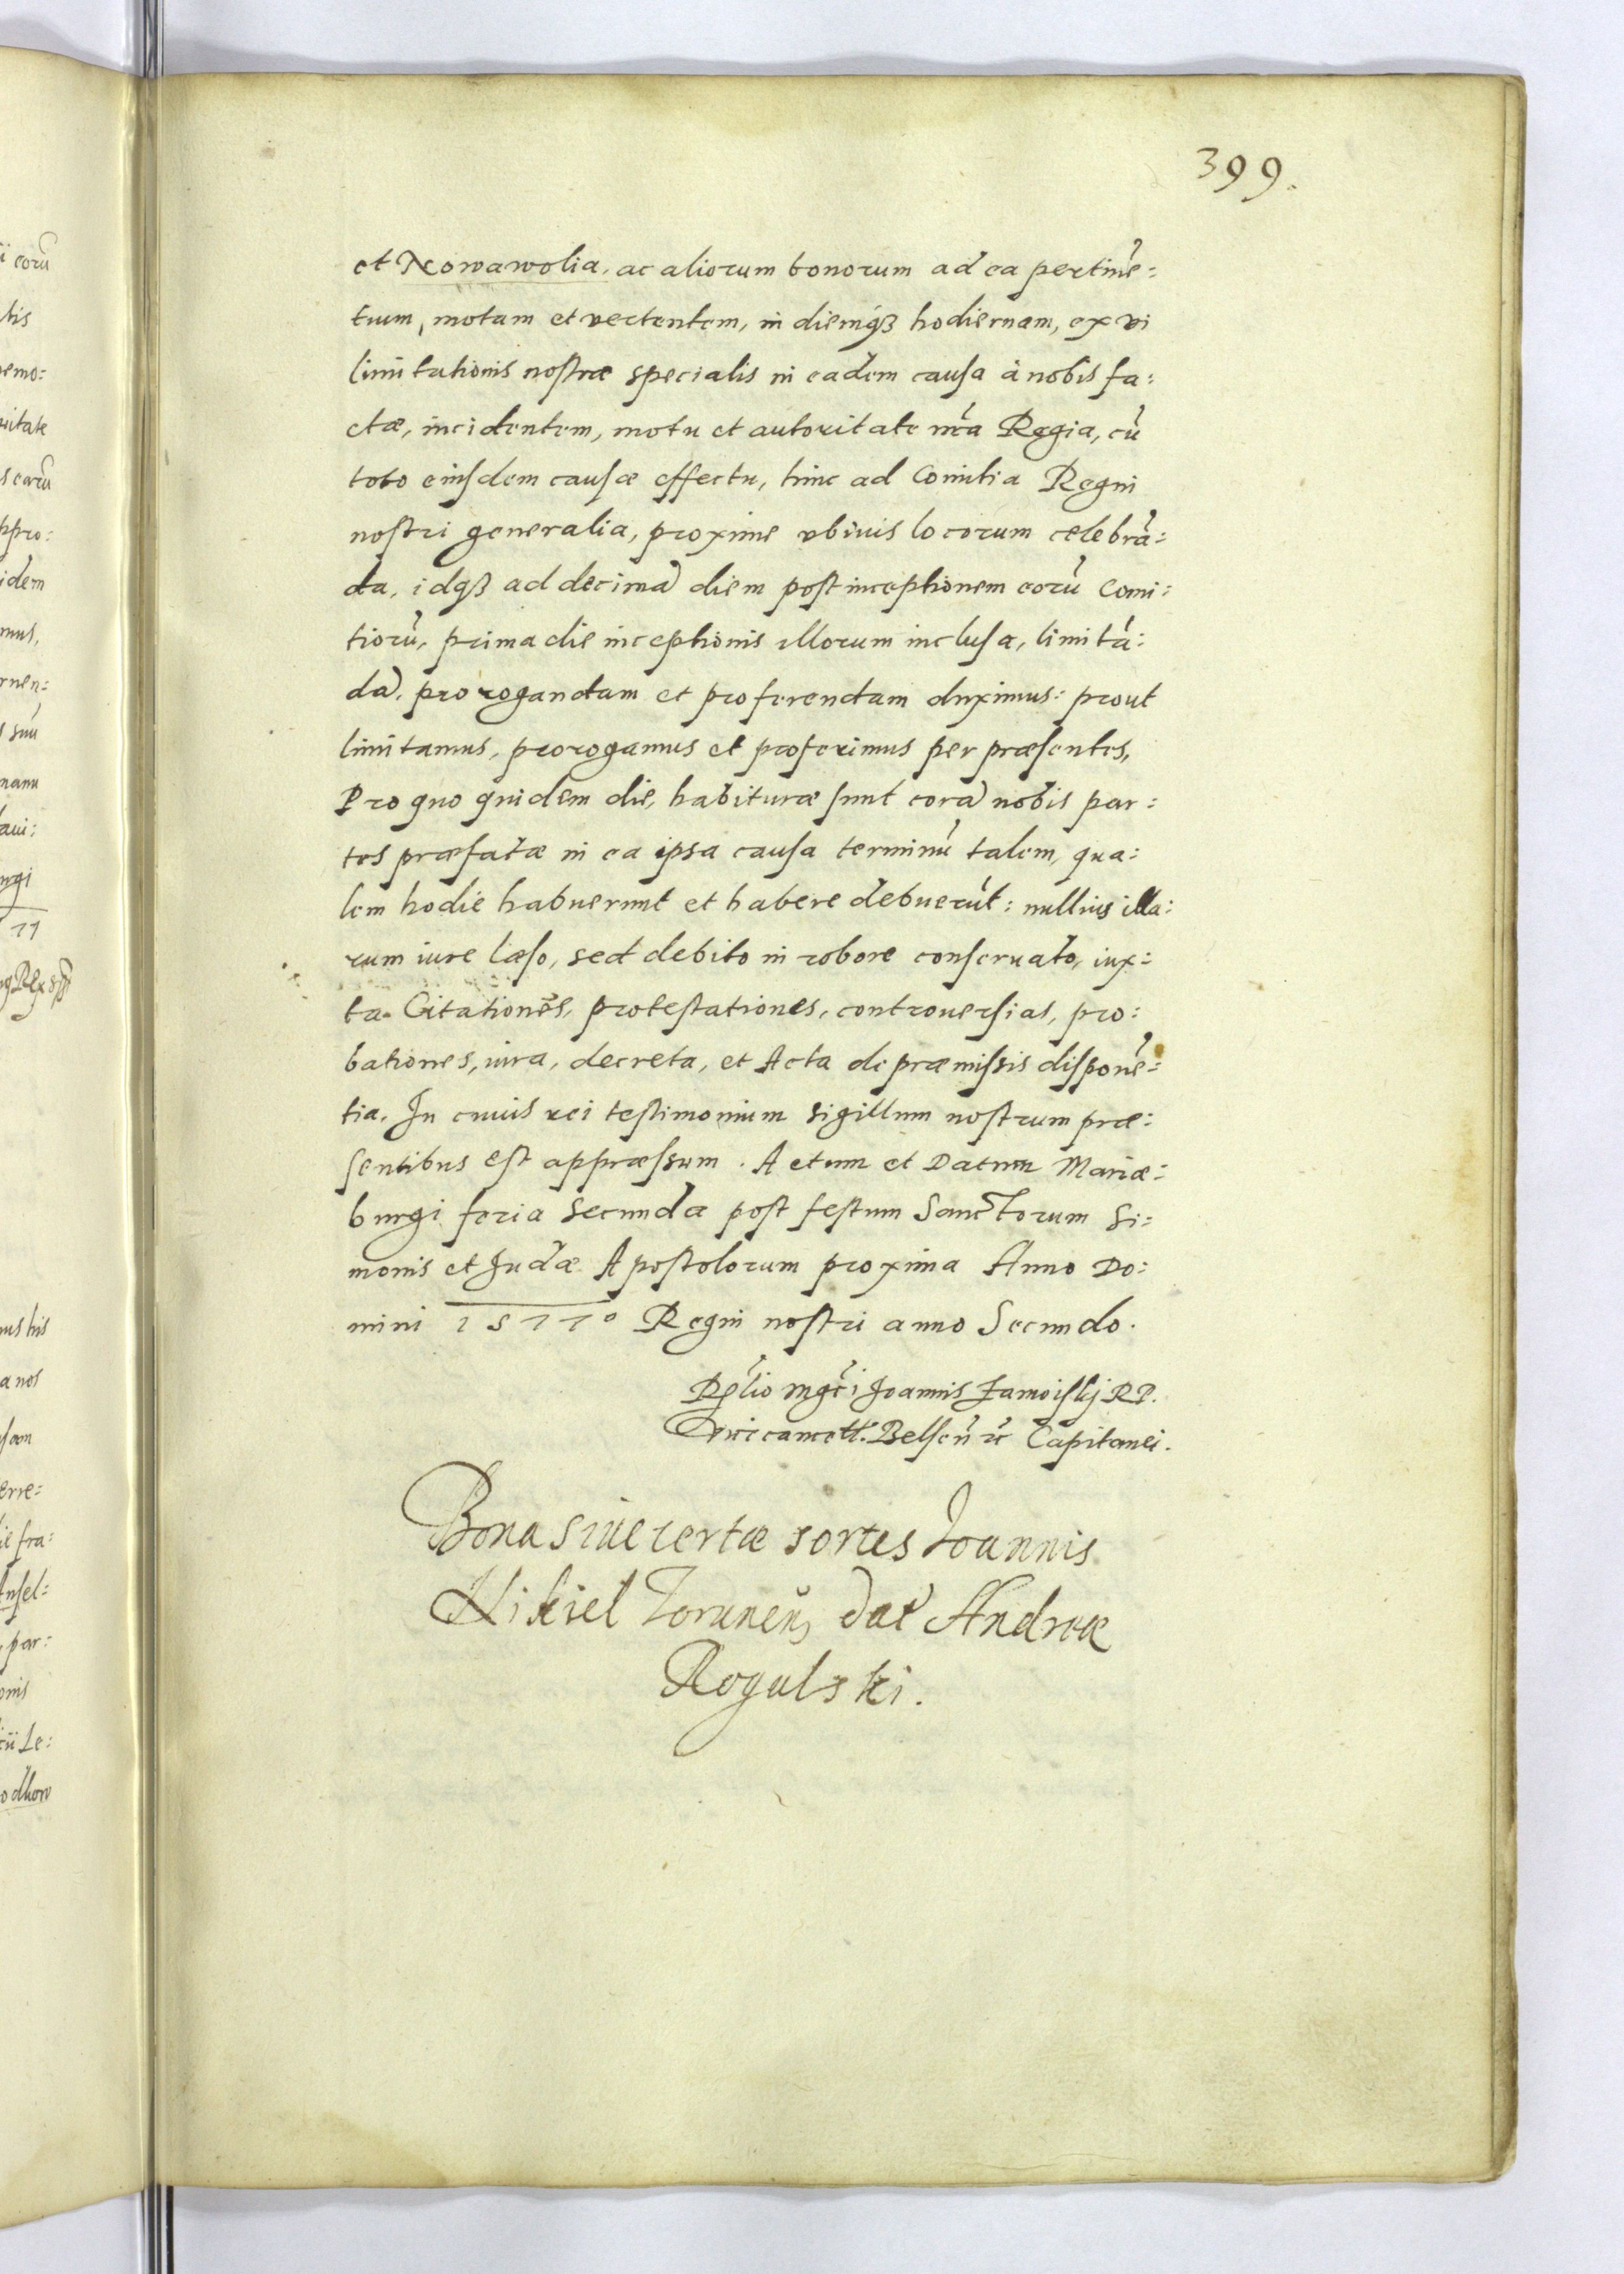 399.
et Nowawolia, ac aliorum bonorum ad ea pertinē:
tium, motam et vertentem, in diemq́ꝫ hodiernam, ex vi
limitationis nostræ specialis in eadem causa à nobis fa:
ctæ, incidentem, motu et autoritate nr̃a Regia, cũ
toto eiusdem causæ effectu, hinc ad Comitia Regni
nostri generalia, proxime vbiuis locorum celebrã:
da, idqꝫ ad decimã diem post inceptionem eorũ Comi:
tiorũ, prima die inceptionis illorum inclusa, limitã:
dã, prorogandam et proferendam duximus: prout
limitamus, prorogamus et proferimus per præsentes,
Pro quo quidem die, habituræ sunt corã nobis par:
tes præfatæ in ea ipsa causa terminũ talem, qua:
lem hodie habuerunt et habere debuerũt: nullius illa:
rum iure læso, sed debito in robore conseruato, iux:
ta Citationes, protestationes, controuersias, pro:
bationes, iura, decreta, et Acta de præmissis disponē:
tia. In cuius rei testimonium sigillum nostrum præ:
sentibus est appræssum. Actum et Datum Mariæ:
burgi feria secunda post festum Sanctorum Si:
monis et Judæ Apostolorum proxima Anno Do:
mini 1577º Regni nostri anno Secundo.
Rel̃io Mgc̃i Joannis Zamoiskj RP.
Vicecancell. Belsen̄ zc̃ Capitanei.
Bona siue certæ sortes Joannis
Nikiel Torunen̄s dat̃ Andreæ
Rogulski.
eorũ
tis
emo:
ritate
s earũ
ppro:
idem
mus,
rnen:
suũ
manu
aui:
urgi
77
us his
a nos
erre:
ie fra:
Ansel:
par:
onis
Le:
odhow